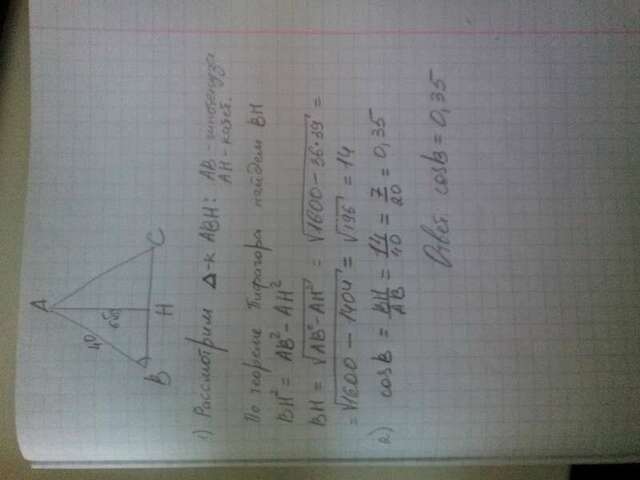 A
40
6√39
B
H
C
1) Рассмотрим Δ-к ABH: AB - гипотенуза
AH - катет.
По теореме Пифагора найдем BH
BH² = AB² - AH²
BH = √AB² - AH² = √1600 - 36·39 =
= √1600 - 1404 = √196 = 14
2) cosB = BH/AB = 14/40 = 7/20 = 0,35
Ответ cosB = 0,35